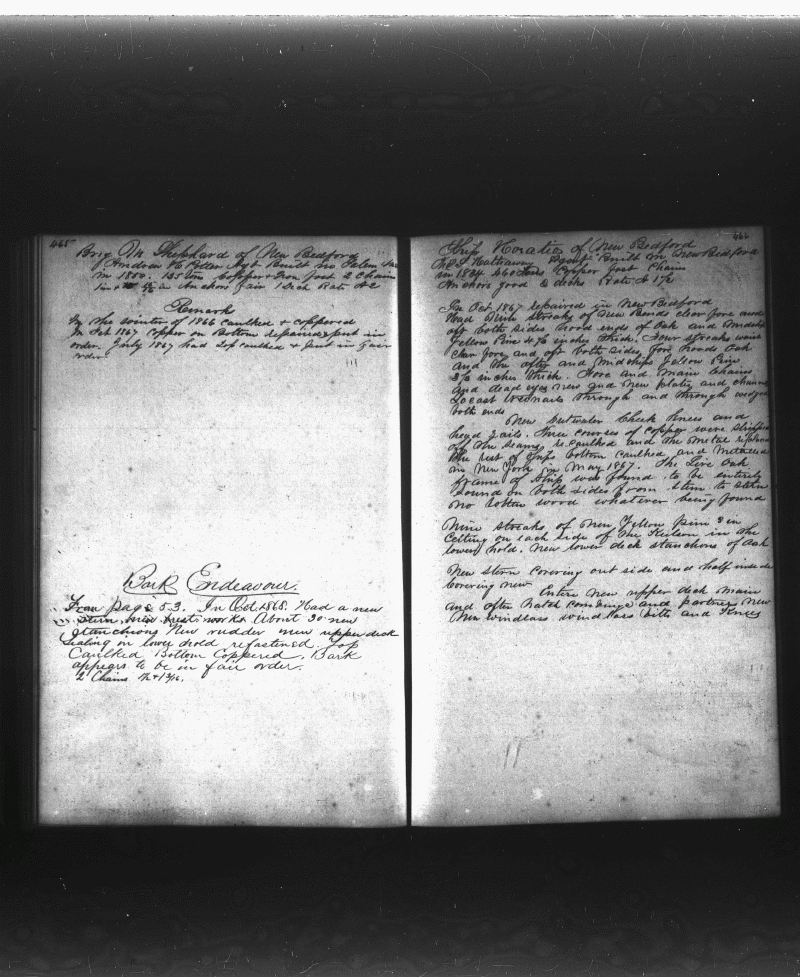 465
Brig Tm Shephard of New Bedford
Andrew H. Potter Agt. Built in Salem
in 1850. 135 Tons Copper Iron fast 2 Chains
1 in in Anchors fair 1 Deck Rate A 2
Remark
In the winter of 1866 caulked & coppered
In Oct 1867 Copper on Bottom repaired & put in
order. July 1867 had Top caulked & put in fair
order
Bark Endeavour.
From page 53. In Oct. 1868. Had a new
stern, new works About 30 new
stanchions New rudder new upper deck
Ceiling in lower hold refastened. Top
Caulked Bottom Coppered. Bark
appears to be in fair order.
2 Chains
466
Ship Horatio of New Bedford
Hathaway Agent Built in New Bedford
in 1834 460 Tons Copper fast Chains
Anchors good 2 decks Rate A 1½
In Oct. 1867 repaired in New Bedford
Had Nine streaks of New Bends clear fore and
aft both sides hood ends of Oak and Midship
Yellow Pine 4½ inches thick. Four streaks waist
clear fore and aft both sides, fore hoods Oak
and the after and midships Yellow Pine
3½ inches thick. Fore and main Chains
and dead eyes new and new plates and chains
Locust treenails through and through wedged
both ends
New cutwater Cheek Knees and
head rails. Three courses of copper were stripped
off the seams re-caulked and the metal replaced
The rest of Ships bottom caulked and metaled
in New York in May 1867. The Live Oak
frame of Ship was found to be entirely
sound on both sides from stem to stern
no rotten wood whatever being found
Nine streaks of New Yellow pine 3 in
Ceiling on each side of the Keelson in the
lower hold. New lower deck stanchions of Oak
New stern covering out side and half inside
covering new Entire new upper deck main
and after hatch combings and partners New
New windlass windlass bitts and Knees